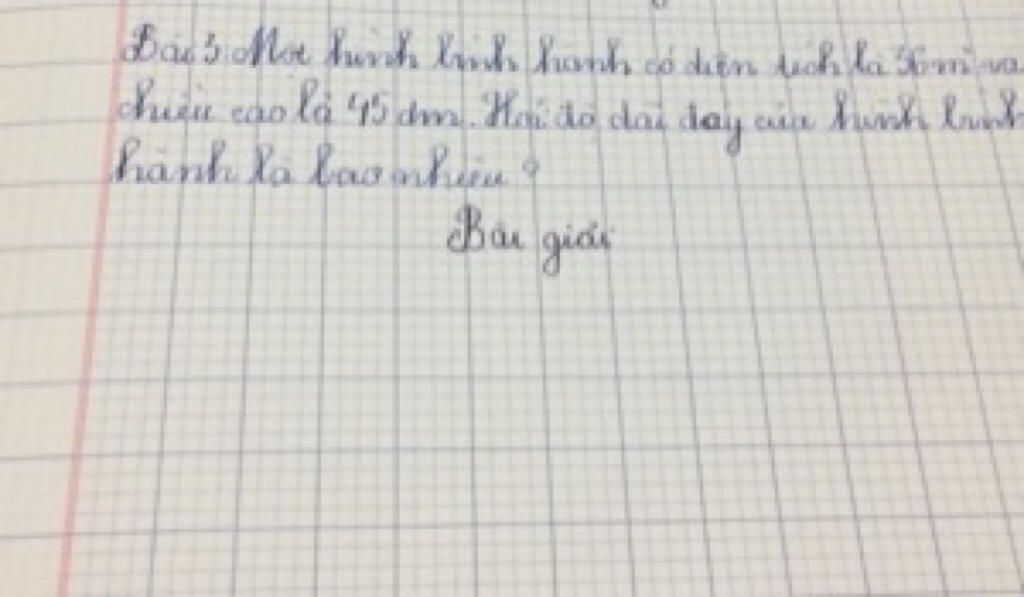 Bài 3: Một hình bình hành có diện tích là 36m² và
chiều cao là 45 dm. Hỏi độ dài đáy của hình bình
hành là bao nhiêu?
Bài giải